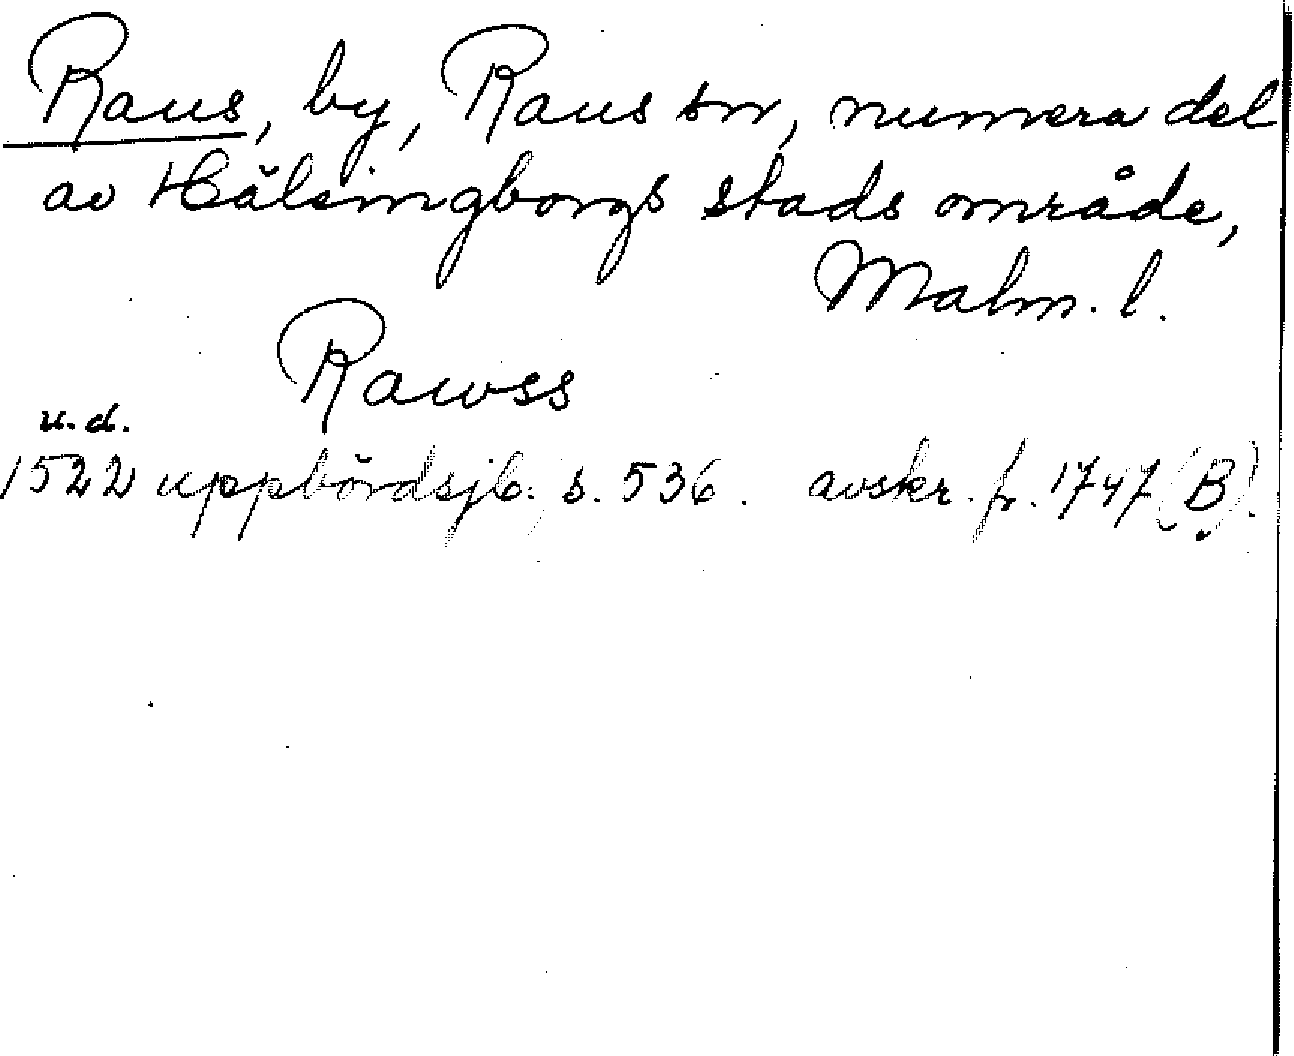 Raus, by, Raus sn, numera del
av Hälsingborgs stads område,
Malm. l.
Rawss
u. d.
1522 uppbördsjb. s. 536. avskr. fr. 1747 (B).